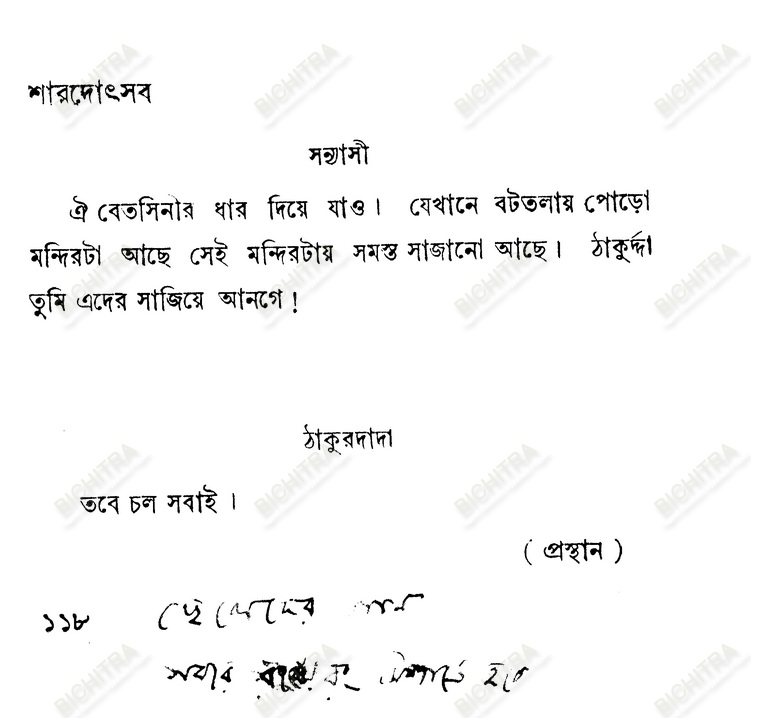 শারদোৎসব
সন্ন্যাসী
ঐ বেতসিনীর ধার দিয়ে যাও। যেখানে বটতলায় পোড়ো
মন্দিরটা আছে সেই মন্দিরটায় সমস্ত সাজানো আছে। ঠাকুর্দ্দা
তুমি এদের সাজিয়ে আনগে!
ঠাকুরদাদা
তবে চল সবাই।
( প্রস্থান )
১১৮ ছেলেদের গান
সবার হবে
BICHITRA